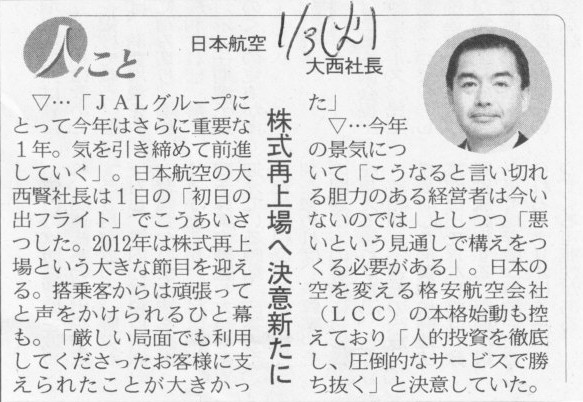 人こと
日本航空
1/3(火)
大西社長
株式再上場へ決意新たに
▽…「ＪＡＬグループに
とって今年はさらに重要な
１年。気を引き締めて前進
していく」。日本航空の大
西賢社長は１日の「初日の
出フライト」でこうあいさ
つした。2012年は株式再上
場という大きな節目を迎え
る。搭乗客からは頑張って
と声をかけられるひと幕
も。「厳しい局面でも利用
してくださったお客様に支
えられたことが大きかっ
た」
▽…今年
の景気につ
いて「こうなると言い切れ
る胆力のある経営者は今い
ないのでは」としつつ「悪
いという見通しで構えをつ
くる必要がある」。日本の
空を変える格安航空会社
（ＬＣＣ）の本格始動も控
えており「人的投資を徹底
し、圧倒的なサービスで勝
ち抜く」と決意していた。